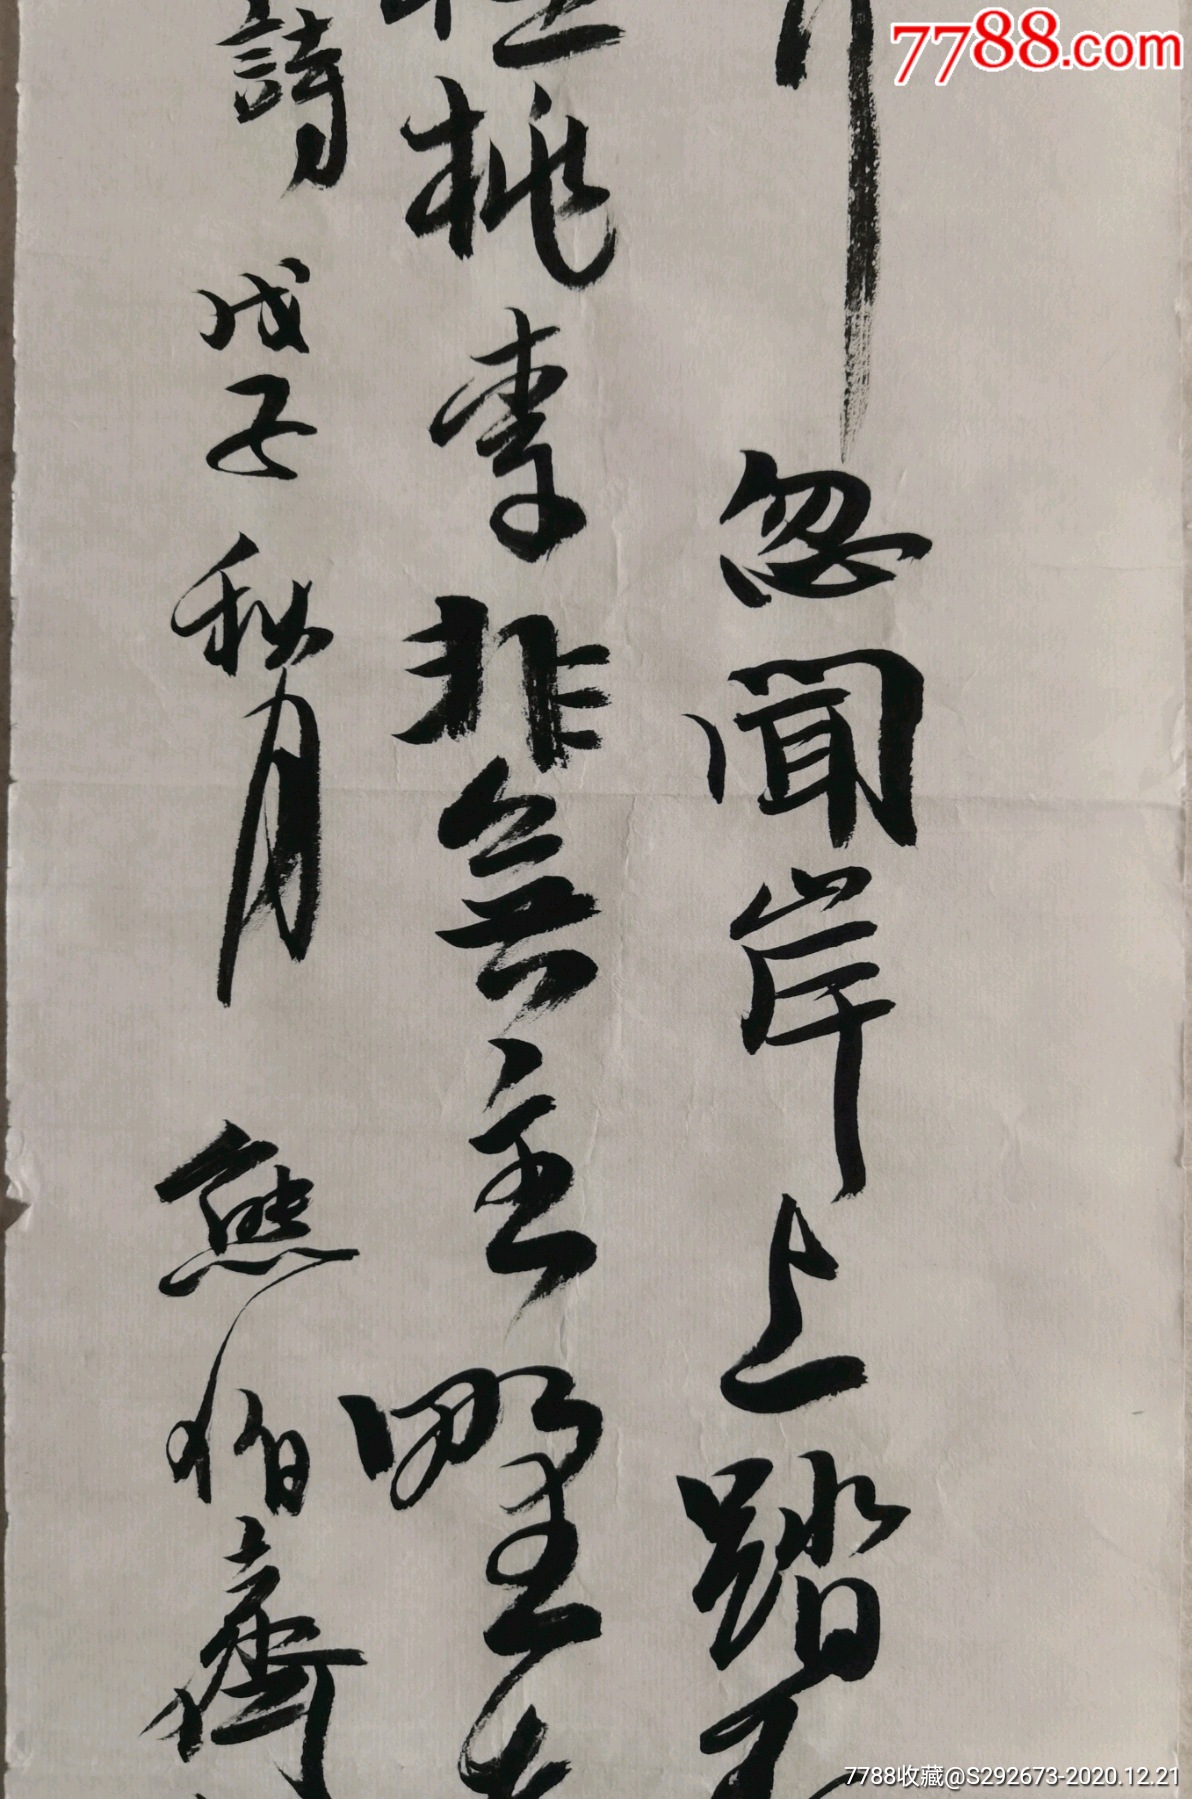 7788.com
忽聞岸上踏
桃李非無主野
詩 戊子秋月 熊伯齊
7788收藏@S292673-2020.12.21